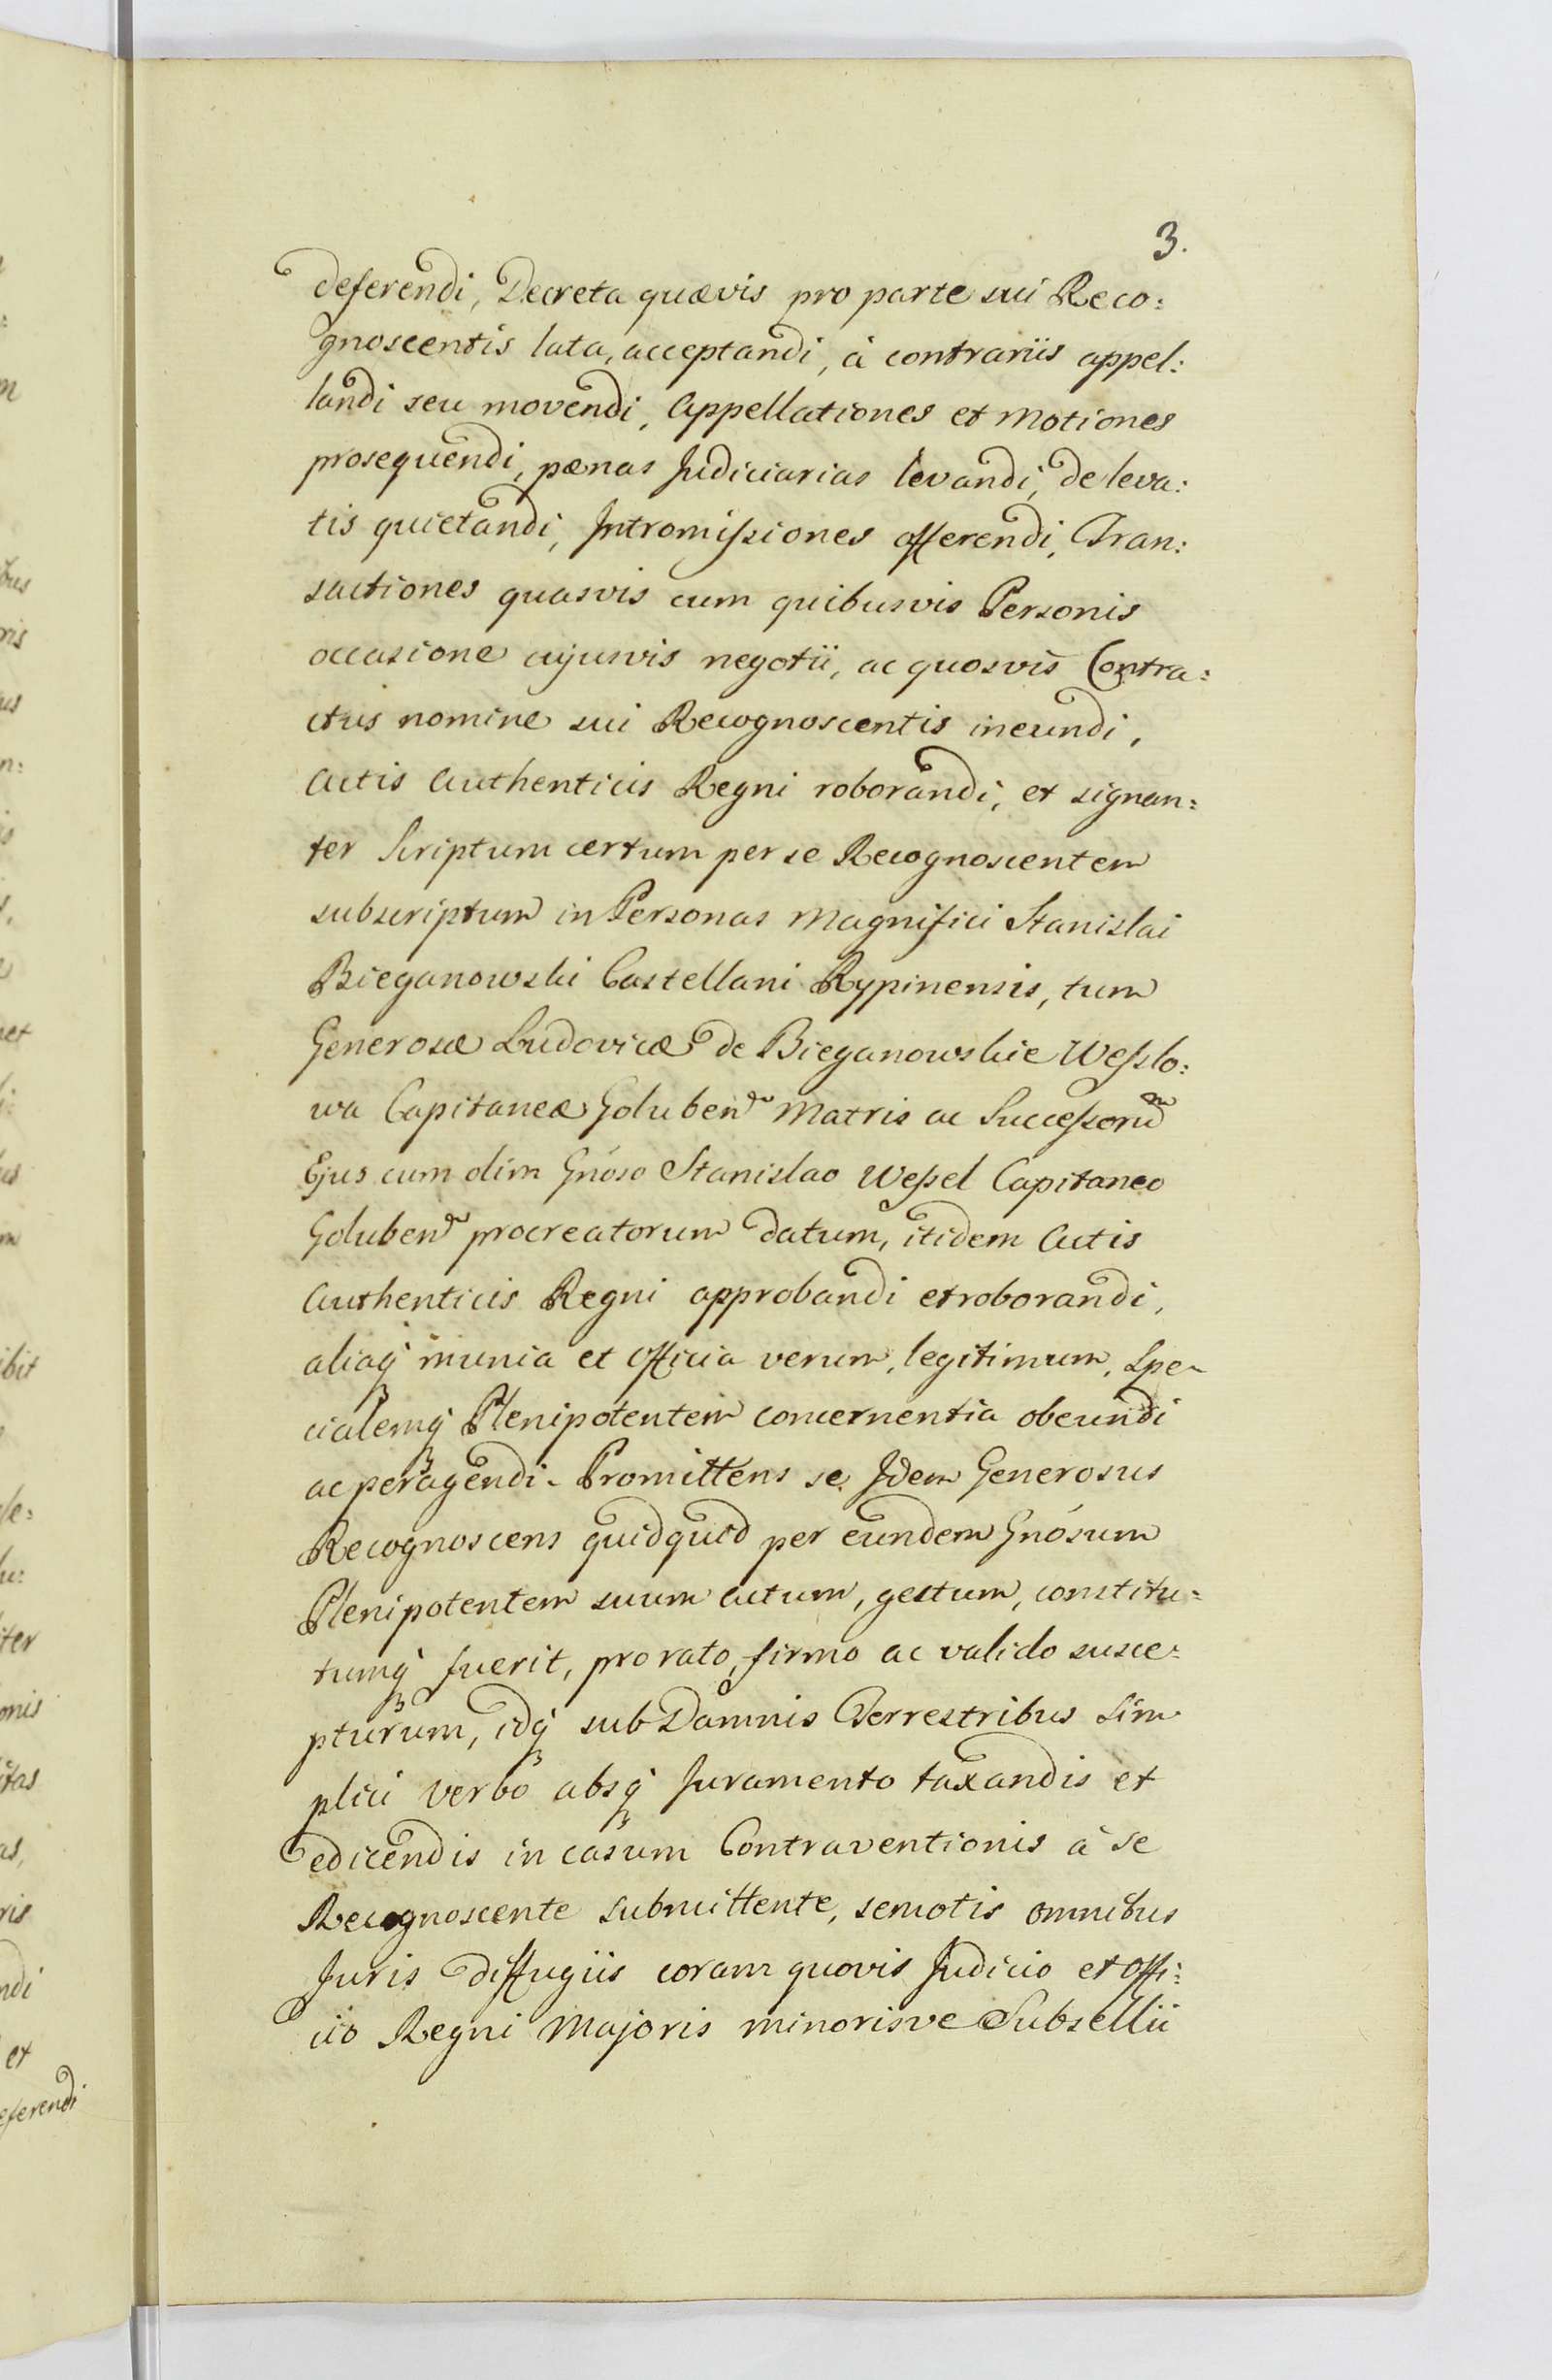 3.
deferendi, Decreta quævis pro parte sui Reco:
gnoscentis lata, acceptandi, à contrariis appel:
landi seu movendi, Appellationes et Motiones
prosequendi, pænas Judiciarias levandi, de leva:
tis quietandi, Intromissiones offerendi, Tran:
sactiones quasvis cum quibusvis Personis
occasione cujusvis negotii, ac quosvis Contra:
ctus nomine sui Recognoscentis ineundi,
Actis Authenticis Regni roborandi, et signan:
ter Scriptum certum per se Recognoscentem
subscriptum in Personas Magnifici Stanislai
Bieganowski Castellani Rypinensis, tum
Generosæ Ludovicæ de Bieganowskie Wesslo:
wa Capitaneæ Goluben Matris ac Successorum
Ejus cum olim Gnóso Stanislao Wessel Capitaneo
Goluben procreatorum datum, itidem Actis
Authenticis Regni approbandi et roborandi,
aliaq munia et officia verum, legitimum, Spe
cialemq Plenipotentem concernentia obeundi
ac peragendi. Promittens se Idem Generosus
Recognoscens quidquid per eundem Gnósum
Plenipotentem suum actum, gestum, constitu:
tumq fuerit, pro rato, firmo ac valido susce:
pturum, idq sub Damnis Terrestribus sim
plici verbo absq Juramento taxandis et
edicendis in casum Contraventionis à se
Recognoscente submittente, semotis omnibus
Juris diffugiis coram quovis Judicio et Offi:
cio Regni Majoris minorisve Subsellii